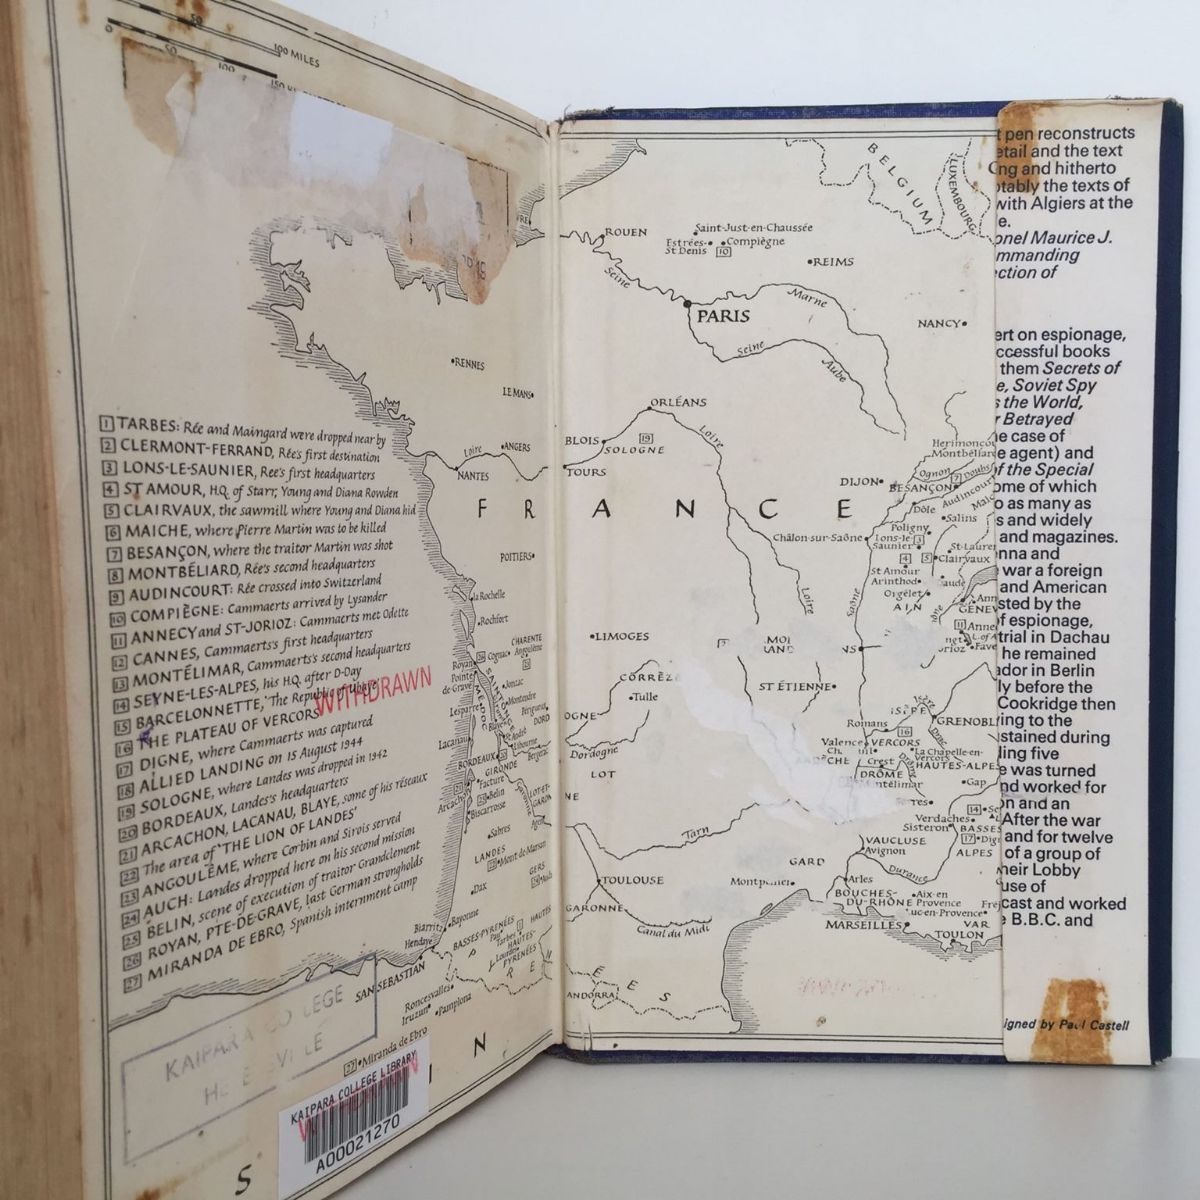 50
100 MILES
0
50
100
1 TARBES: Rée and Maingard were dropped near by
2 CLERMONT-FERRAND, Rée's first destination
3 LONS-LE-SAUNIER, Rée's first headquarters
4 ST AMOUR, H.Q. of Starr; Young and Diana Rowden
5 CLAIRVAUX, the sawmill where Young and Diana hid
6 MAICHE, where Pierre Martin was to be killed
7 BESANÇON, where the traitor Martin was shot
8 MONTBÉLIARD, Rée's second headquarters
9 AUDINCOURT: Rée crossed into Switzerland
10 COMPIÈGNE: Cammaerts arrived by Lysander
11 ANNECY and ST-JORIOZ: Cammaerts met Odette
12 CANNES, Cammaerts's first headquarters
13 MONTÉLIMAR, Cammaerts's second headquarters
14 SEYNE-LES-ALPES, his H.Q. after D-Day
15 BARCELONNETTE, 'The Republic of
16 THE PLATEAU OF VERCORS
17 DIGNE, where Cammaerts was captured
18 ALLIED LANDING on 15 August 1944
19 SOLOGNE, where Landes was dropped in 1942
20 BORDEAUX, Landes's headquarters
21 ARCACHON, LACANAU, BLAYE, some of his réseaux
22 The area of 'THE LION OF LANDES'
23 ANGOULÊME, where Corbin and Sirois served
24 AUCH: Landes dropped here on his second mission
25 BELIN, scene of execution of traitor Grandclement
26 ROYAN, PTE-DE-GRAVE, last German strongholds
27 MIRANDA DE EBRO, Spanish internment camp
WITHDRAWN
RENNES
LE MANS
Loire
ANGERS
NANTES
POITIERS
la Rochelle
Rochfort
CHARENTE
Cognac
Angoulême
Royan
Pointe
de Grave
SAINTONGE
MÉDOC
Jonzac
Montendre
Lesparre
Lacanau
Libourne
BORDEAUX
GIRONDE
Facture
Belin
Biscarrosse
Sabres
LANDES
Mont de Marsan
GERS
Dax
Bayonne
Biarritz
Hendaye
BASSES-PYRÉNÉES
Pau
Tarbes
Lourdes
HAUTES-
PYRÉNÉES
SAN SEBASTIAN
Roncesvalles
Irurzun
Pamplona
27 Miranda de Ebro
KAIPARA COLLEGE
KAIPARA COLLEGE LIBRARY
WITHDRAWN
A00021270
S
N
BELGIUM
LUXEMBOURG
ROUEN
Saint-Just-en-Chaussée
Estrées-
St Denis
Compiègne
10
REIMS
Seine
Marne
PARIS
NANCY
Seine
Aube
ORLÉANS
BLOIS
19
SOLOGNE
Loire
TOURS
FRANCE
DIJON
Hérimoncourt
Montbéliard
Ognon
7
Doubs
BESANÇON
Audincourt
Dôle
Salins
Poligny
Châlon-sur-Saône
Lons-le-
Saunier
3
St-Laurent
4
5
Clairvaux
St Amour
Arinthod
Orgelet
AIN
Saône
Loire
LIMOGES
11
CORRÈZE
Tulle
ST ÉTIENNE
ISÈRE
GRENOBLE
Romans
16
Valence
VERCORS
La Chapelle-en-
Vercors
HAUTES-ALPES
Crest
DRÔME
Montélimar
Gap
Dordogne
LOT
14
Verdaches
Sisteron
BASSES
17
ALPES
Tarn
VAUCLUSE
Avignon
Durance
GARD
Montpellier
Arles
BOUCHES-
DU-RHÔNE
Aix-en
Provence
TOULOUSE
GARONNE
Canal du Midi
MARSEILLES
VAR
TOULON
ANDORRA
E S
t pen reconstructs
etail and the text
ng and hitherto
tably the texts of
with Algiers at the
e.
onel Maurice J.
mmanding
ection of
ert on espionage,
ccessful books
them Secrets of
e, Soviet Spy
s the World,
r Betrayed
he case of
e agent) and
of the Special
ome of which
o as many as
s and widely
and magazines.
nna and
war a foreign
and American
sted by the
of espionage,
trial in Dachau
he remained
ador in Berlin
ly before the
Cookridge then
ying to the
stained during
ling five
e was turned
nd worked for
on and an
After the war
and for twelve
of a group of
heir Lobby
use of
cast and worked
e B.B.C. and
igned by Paul Castell